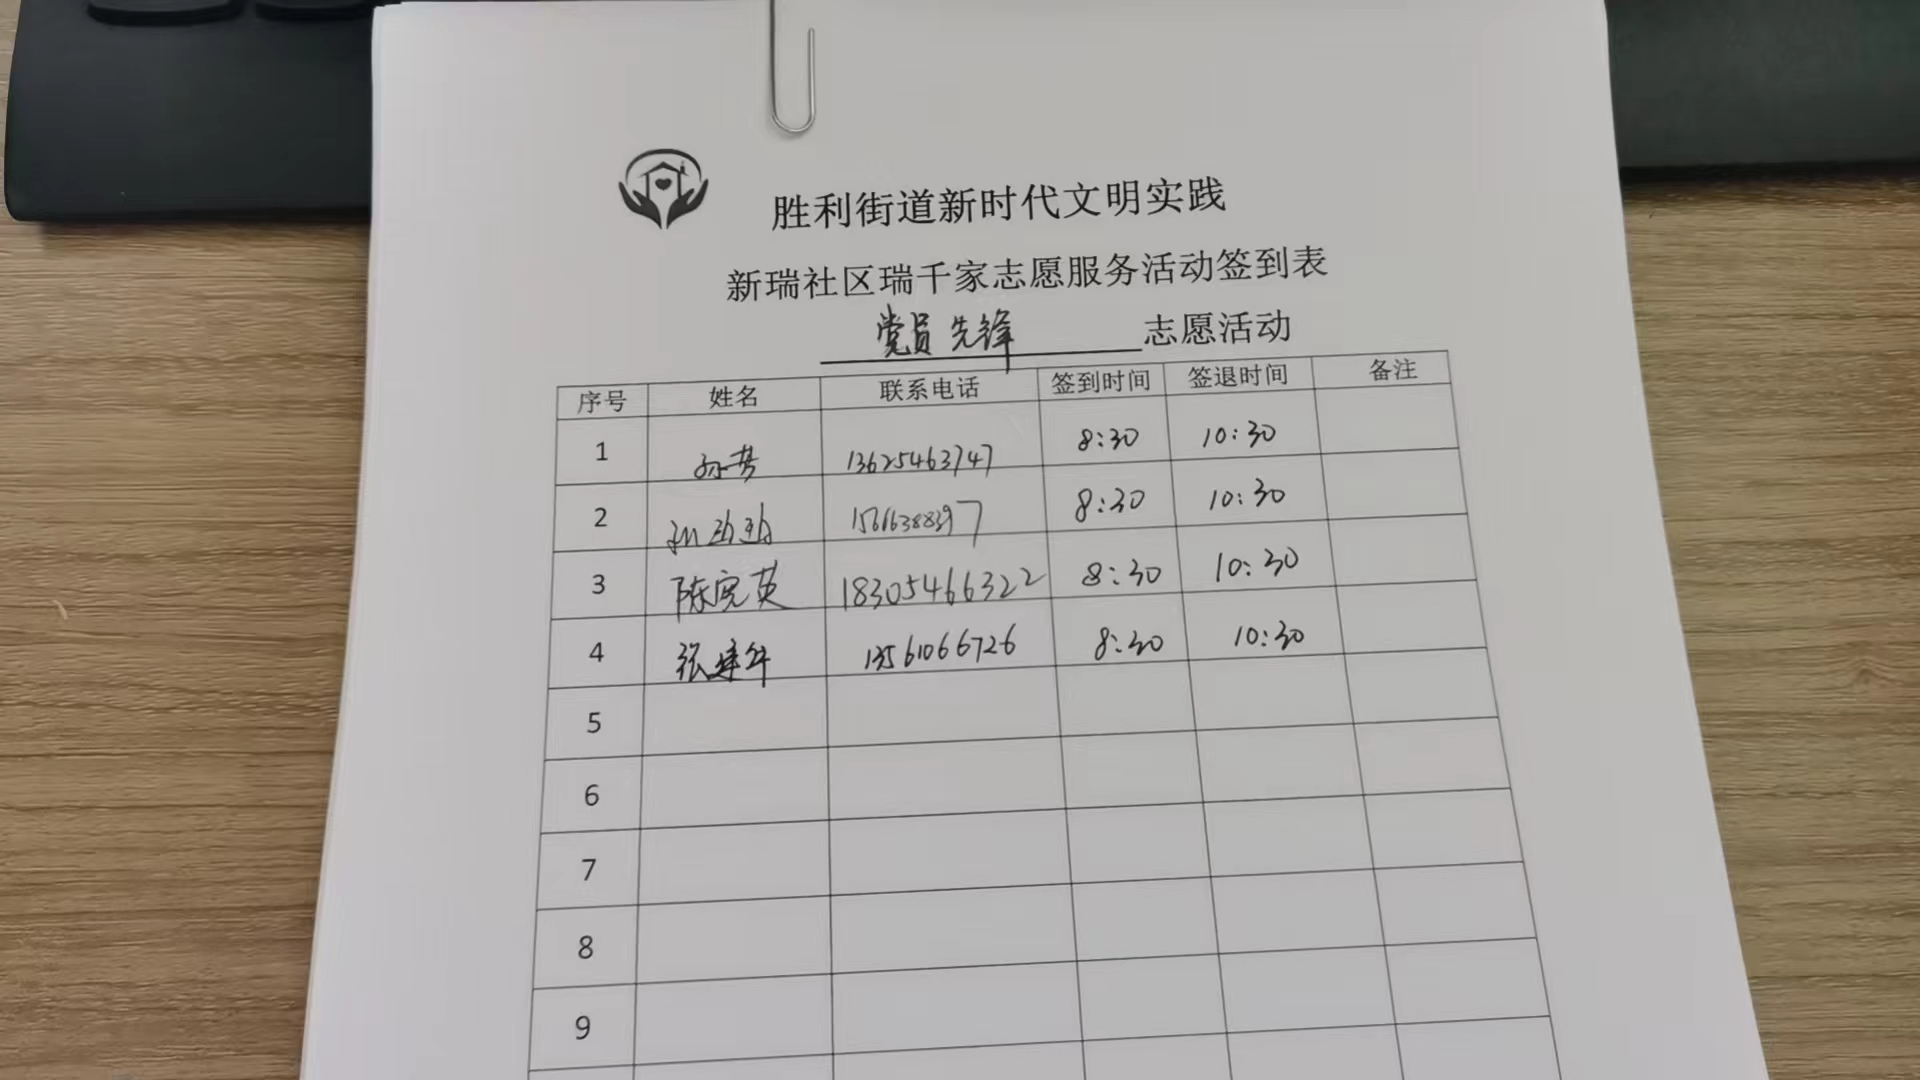 胜利街道新时代文明实践
新瑞社区瑞千家志愿服务活动签到表
党员先锋 志愿活动
序号 姓名 联系电话 签到时间 签退时间 备注
1 孙芳 13625463747 8:30 10:30
2 8:30 10:30
3 陈宪英 18305466322 8:30 10:30
4 张建华 13561066726 8:30 10:30
5
6
7
8
9